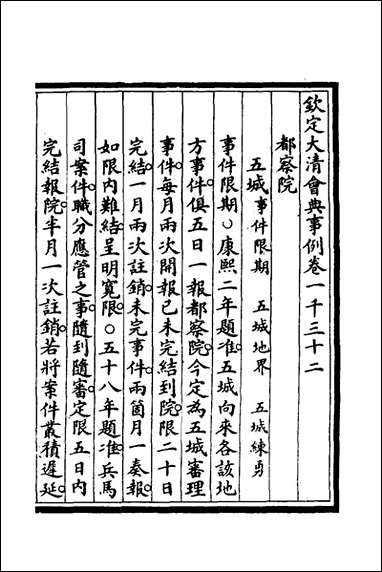 欽定大清會典事例卷一千三十二
都察院
五城事件限期　五城地界　五城練勇
事件限期○康熙二年題准。五城向來各該地
方事件。俱五日一報都察院。今定為五城審理
事件。每月兩次開報。已未完結到院。限二十日
完結。一月兩次註銷。未完事件。兩箇月一奏報。
如限內難結。呈明寬限。○五十八年題准。兵馬
司案件。職分應管之事。隨到隨審。定限五日內
完結報院。半月一次註銷。若將案件叢積遲延。